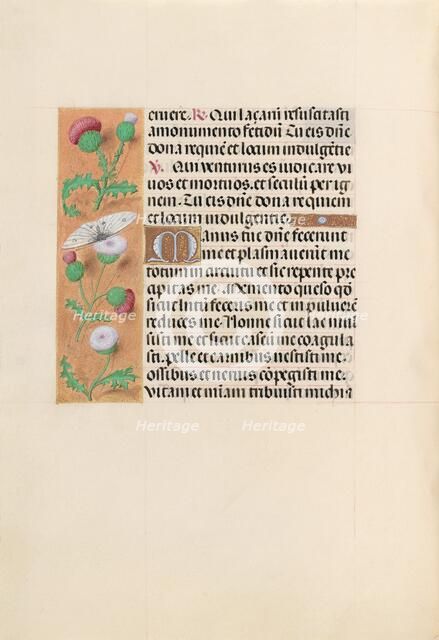 euiere. R. Qui laçarũ resuscitasti
a monumento fetidũ. Tu eis dñe
dona requiẽ et locum indulgẽtie
V. Qui venturus es iudicare vi
uos et mortuos, et seculũ per ig
nem. Tu eis dñe dona requiem
et locum indulgentie.
Manus tue dñe fecerunt
me et plasmauerũt me
totum in circuitu et sic repente p̄ci
pitas me. Memento queso qđ
sicut lutũ feceris me et in puluerẽ
reduces me. Nonne sicut lac mul
sisti me et sicut caseũ me coagula
sti. pelle et carnibus uestisti me.
ossibus et neruis cõpegisti me.
Vitam et miam tribuisti michi.
Heritage
Heritage
Heritage
Heritage
Heritage
Heritage
Images